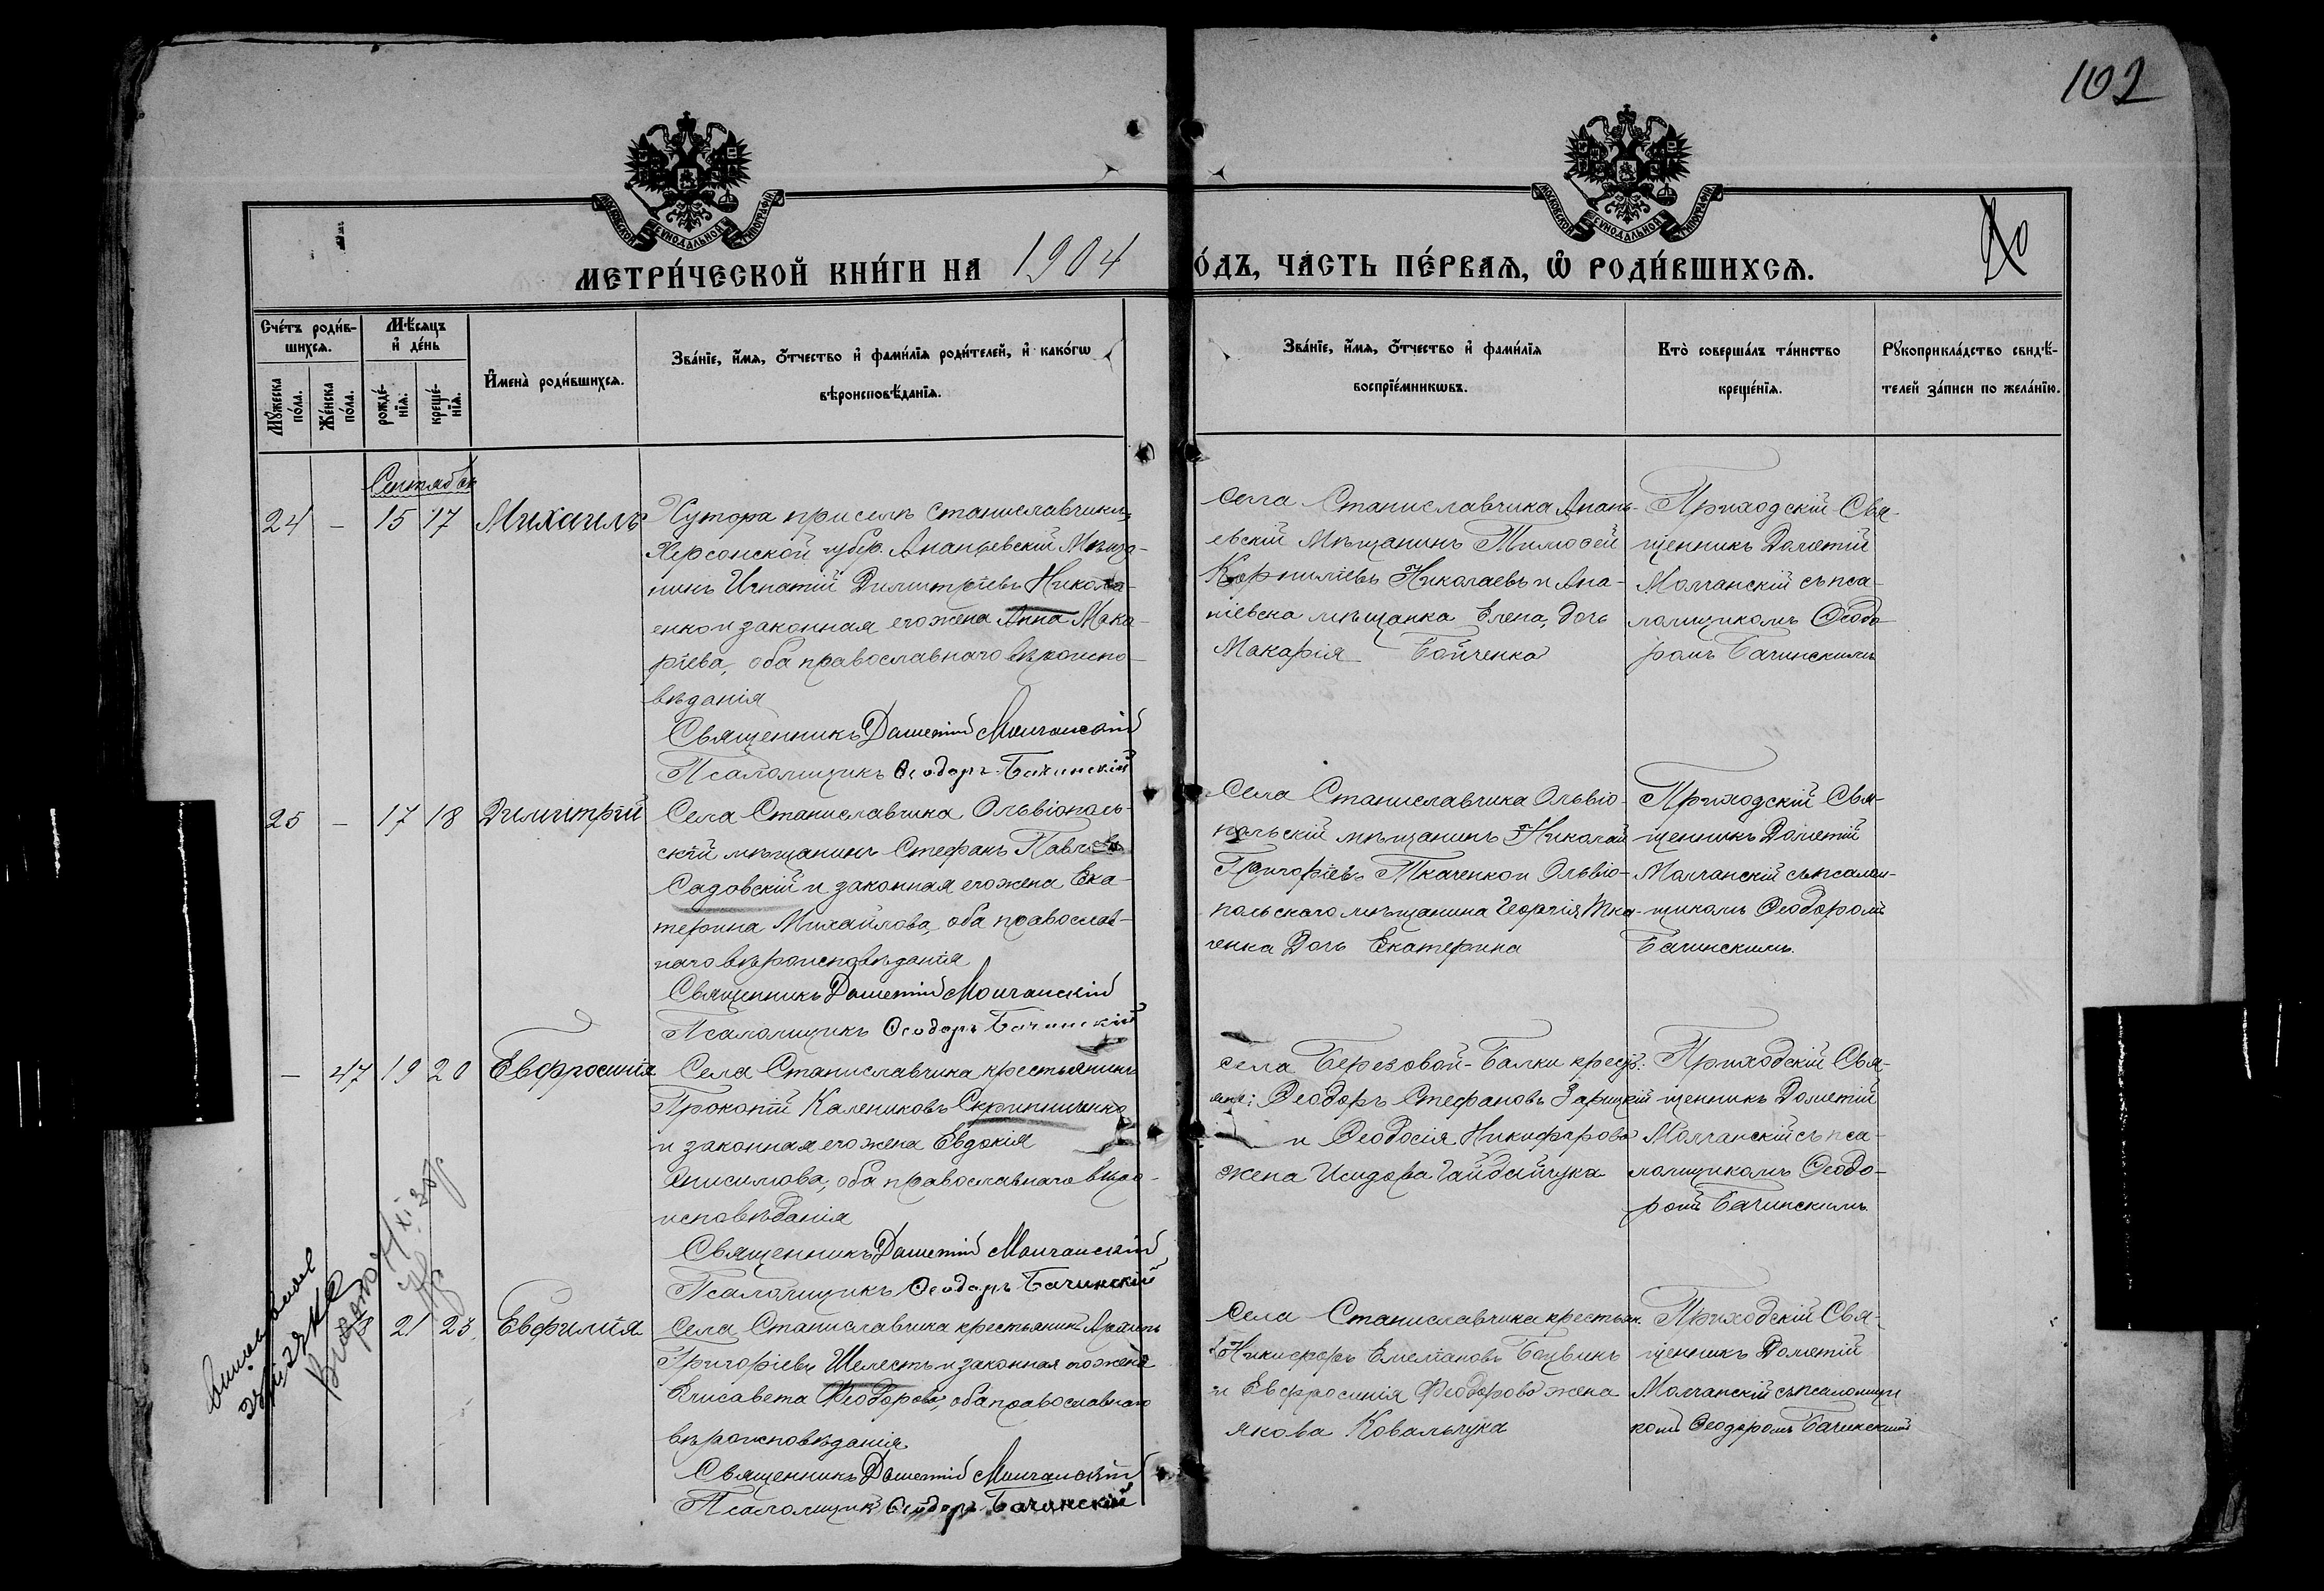 102
МОСКОВСКОЙ СѴНОДАЛЬНОЙ ТИПОГРАФІИ
МОСКОВСКОЙ СѴНОДАЛЬНОЙ ТИПОГРАФІИ
МЕТРИ́ЧЕСКОЙ КНИ́ГИ НА 1904
О́ДЪ, ЧА́СТЬ ПЕ́РВАѦ, Ѡ РОДИ́ВШИХСѦ.
Сче́тъ роди́в-
шихсѧ.
Мꙋ́жеска по́ла.
Же́нска по́ла.
Мѣ́сѧцъ и де́нь
рожде́-
нїѧ.
креще́-
нїѧ.
Имена̀ роди́вшихсѧ.
Зва́нїе, и́мѧ, о́тчество и фами́лїѧ роди́телей, и како́гѡ
вѣроисповѣ́данїѧ.
Зва́нїе, и́мѧ, о́тчество и фами́лїѧ
воспрїе́мникѡвъ.
Кто̀ соверша́лъ та́инство
креще́нїѧ.
Рꙋкоприкла́дство свидѣ́-
телей за́писи по жела́нїю.
Сентябрь
24 - 15 17 Михаилъ
Хутора при селѣ Станиславчикѣ,
Херсонской губер. Ананьевскій Мѣща-
нинъ Игнатій Димитріевъ Никола-
енко и законная его жена Анна Мака-
ріева, оба православнаго вѣроиспо-
вѣданія
Священникъ Дометій Молчанскій
Псаломщикъ Ѳеодоръ Бачинскій
Села Станиславчика Анань-
евскій Мѣщанинъ Тимоѳей
Корниліевъ Николаевъ и Ана-
ніевска мѣщанка Елена, дочь
Макарія Бойченка
Приходскій Свя-
щенникъ Дометій
Молчанскій съ пса-
ломщикомъ Ѳеодо-
ромъ Бачинскимъ
25 - 17 18 Димитрій
Села Станиславчика Ольвіополь-
скій мѣщанинъ Стефанъ Павловъ
Садовскій и законная его жена Ека-
терина Михайлова, оба православ-
наго вѣроисповѣданія
Священникъ Дометій Молчанскій
Псаломщикъ Ѳеодоръ Бачинскій
Села Станиславчика Ольвіо-
польскій мѣщанинъ Николай
Григоріевъ Ткаченко и Ольвіо-
польскаго мѣщанина Георгія Тка-
ченка Дочь Екатерина
Приходскій Свя-
щенникъ Дометій
Молчанскій съ псалом-
щикомъ Ѳеодоромъ
Бачинскимъ.
- 47 19 20 Евфросинія
Села Станиславчика крестьянинъ
Прокопій Калениковъ Скрипниченко
и законная его жена Евдокія
Онисимова, оба православнаго вѣро-
исповѣданія
Священникъ Дометій Молчанскій
Псаломщикъ Ѳеодоръ Бачинскій
Села Березовой-Балки крест:
Ѳеодоръ Стефановъ Зарицкій
и Ѳеодосія Никифорова
жена Исидора Гайдайчука
Приходскій Свя-
щенникъ Дометій
Молчанскій съ пса-
ломщикомъ Ѳеодо-
ромъ Бачинскимъ.
21 23 Евфимія
Села Станиславчика крестьянинъ Архипъ
Григоріевъ Шелестъ и законная его жена
Елисавета Ѳеодорова, оба православнаго
вѣроисповѣданія
Священникъ Дометій Молчанскій
Псаломщикъ Ѳеодоръ Бачинскій
Села Станиславчика крестьян.
Никифоръ Емеліановъ
и Евфросинія Ѳеодорова жена
Якова Ковальчука
Приходскій Свя-
щенникъ Дометій
Молчанскій съ псаломщи
комъ Ѳеодоромъ Бачинскимъ